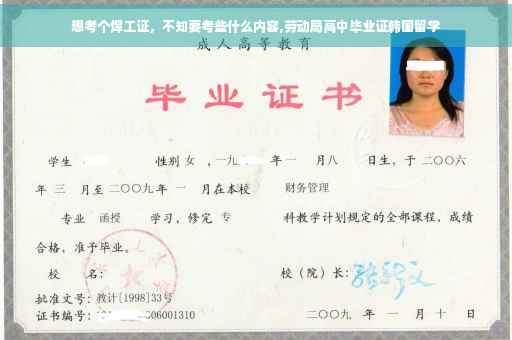 想考个焊工证，不知要考些什么内容,劳动局高中毕业证韩国留学
成人高等教育
毕业证书
学生 性别 女 , 一九 年 一 月八 日生，于 二〇〇六
年 三 月至 二〇〇九 年 一 月在本校 财务管理
专业 函授 学习，修完 专 科教学计划规定的全部课程，成绩
合格，准予毕业。
校 名： 校（院）长：
批准文号：教计[1998]33号
证书编号： 06001310 二〇〇九 年 一 月 十 日